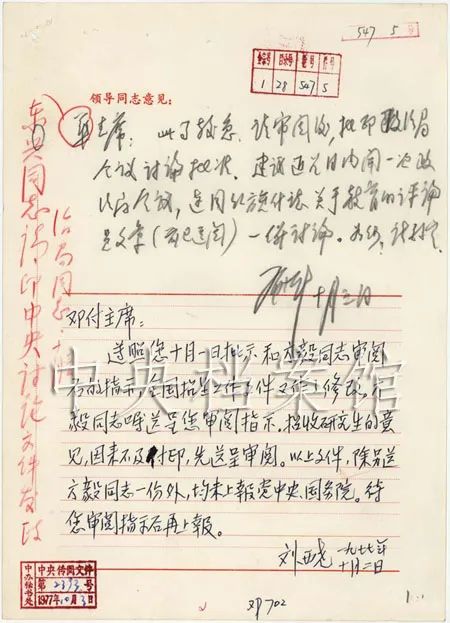 547 5号
全宗号 目录号 卷号 件号
1 28 547 5
领导同志意见：
华主席： 此事较急，请审阅后，批印政治局
会议讨论批准。建议近几日内开一次政
治局会议，连同
关于教育的评论
文章（前已送阅）一併讨论。
十月三日
东兴同志 请印中央讨论文件发政
治局同志
邓付主席：
遵照您十月一日批示和方毅同志审阅
后的指示，全国招生工作文件又作了修改，方
毅同志嘱送呈您审阅指示。招收研究生的意
见，因来不及付印，先送呈审阅。以上文件，除另送
方毅同志一份外，均未上报党中央、国务院。待
您审阅指示后再上报。
刘西尧 一九七七年
十月二日
中央档案馆
中办秘书处
中央传阅文件
第2373号
1977年10月3日
邓702